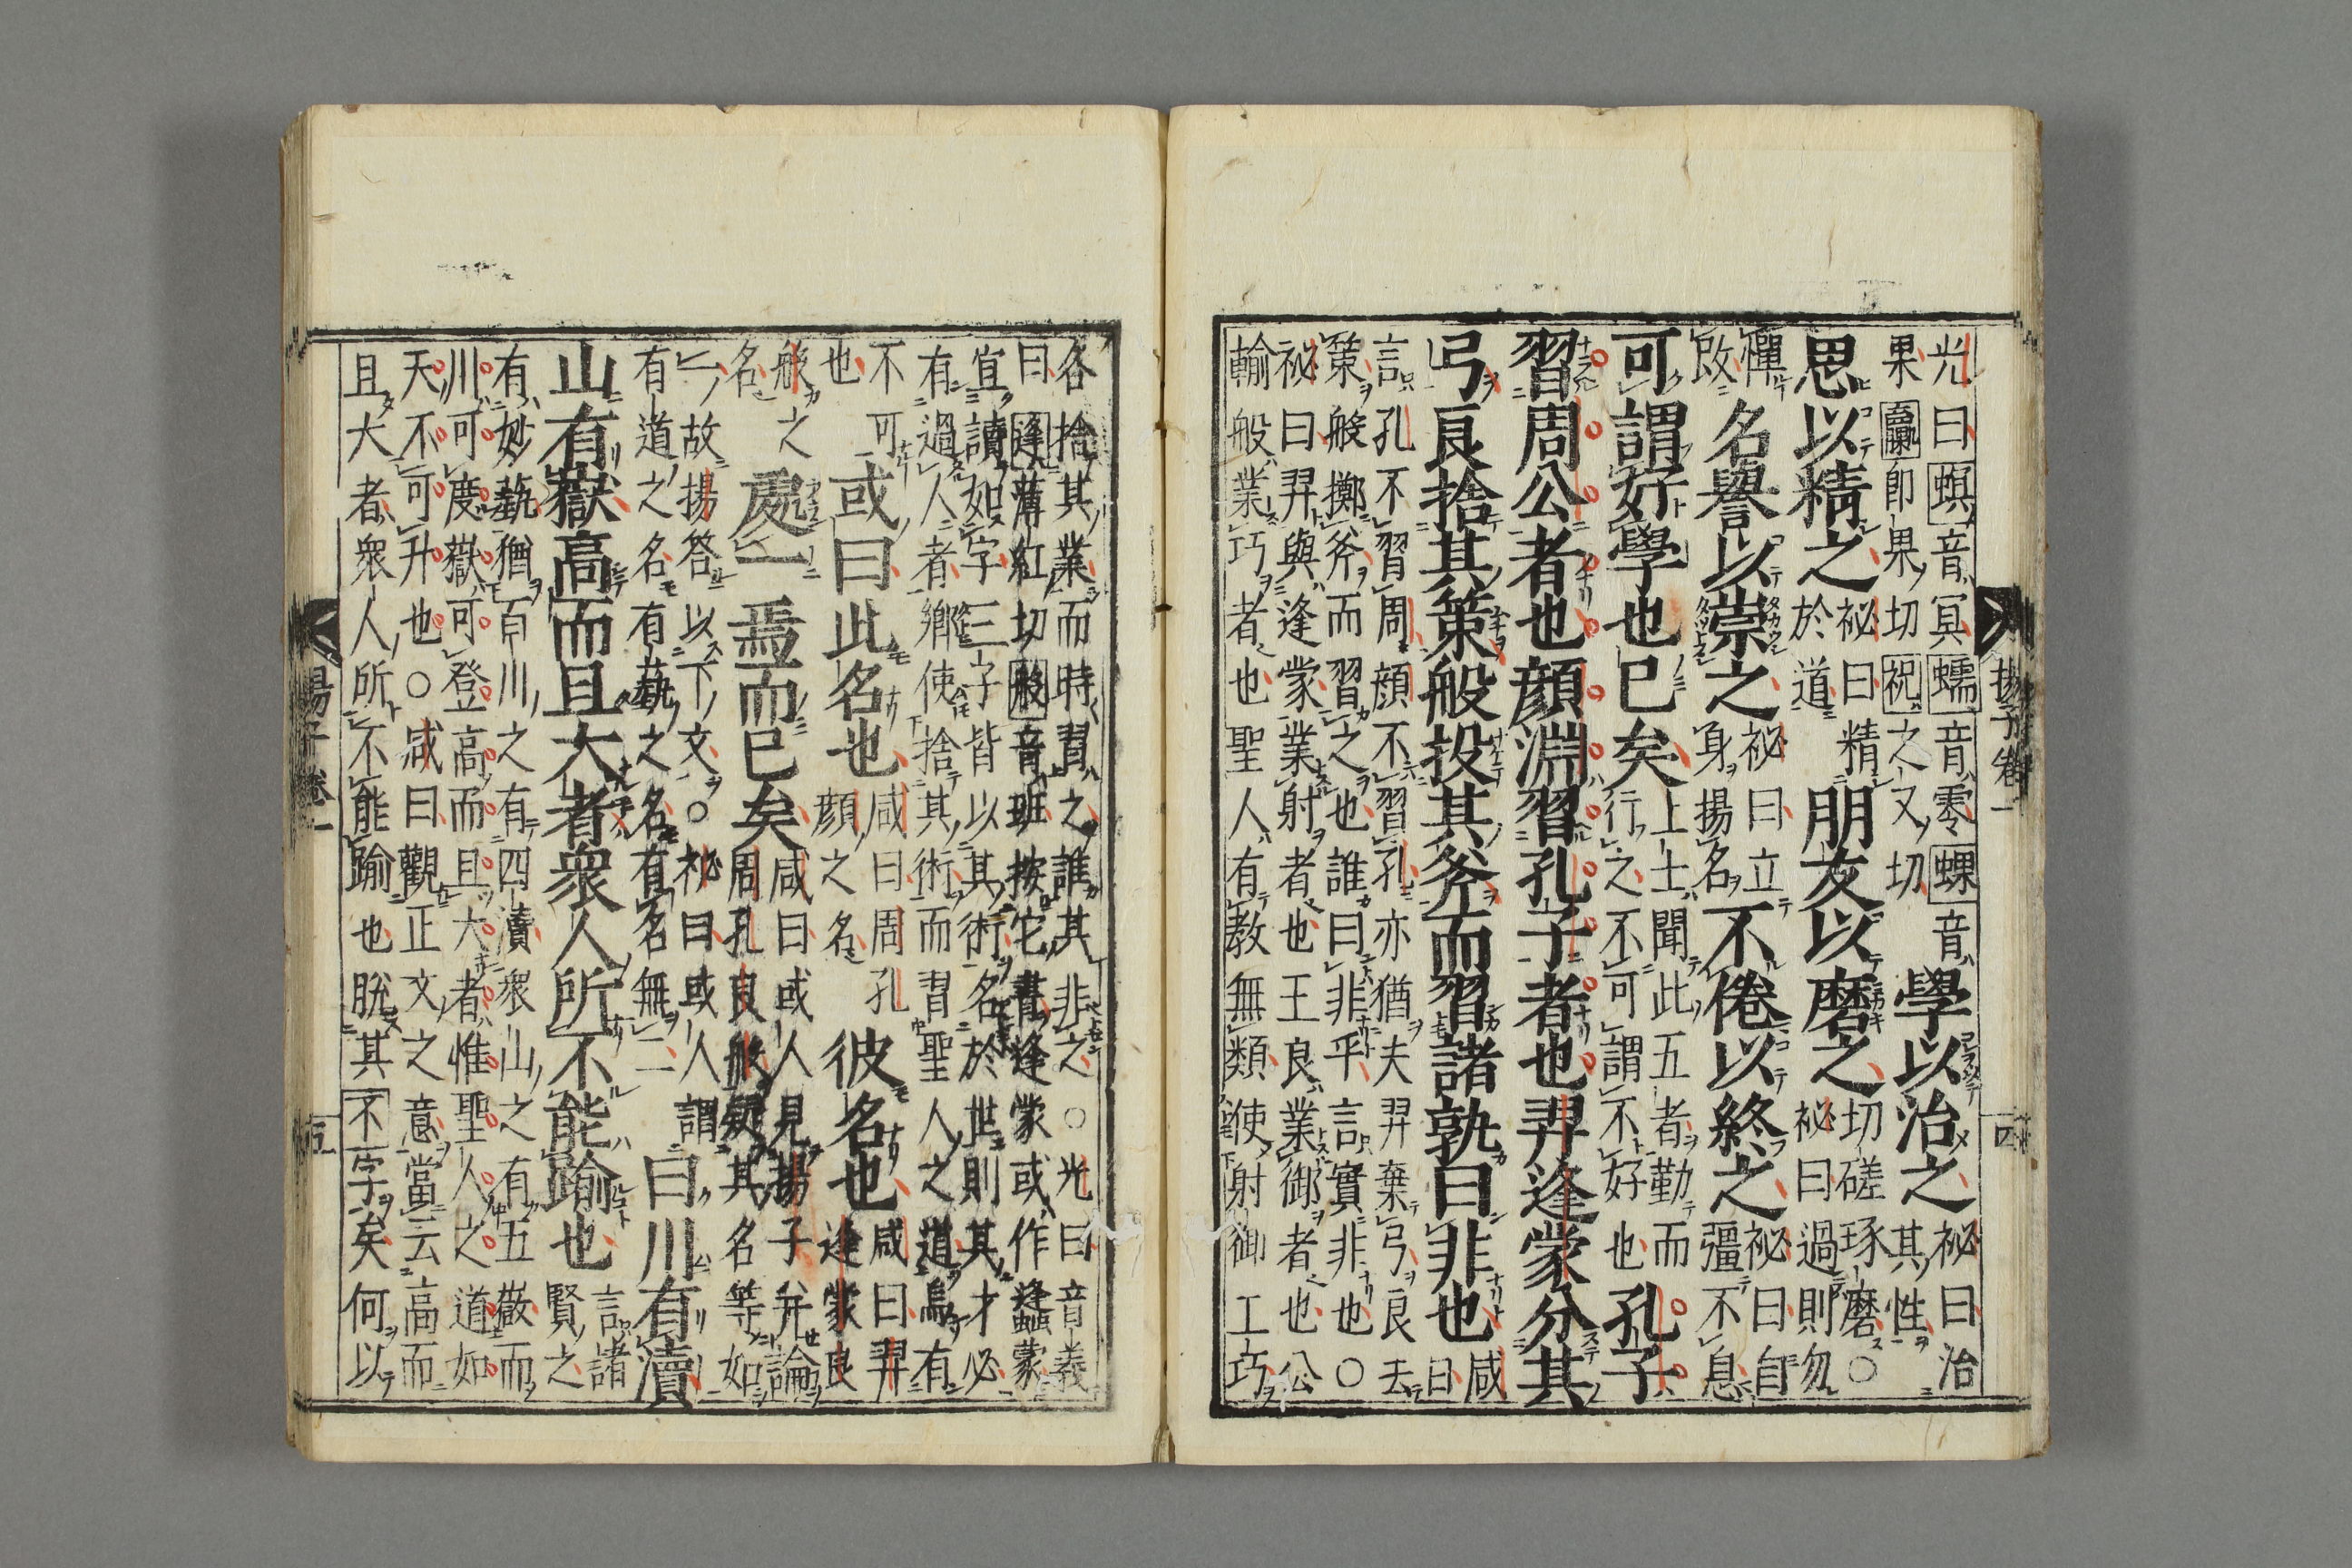 光曰螟音冥蠕音零蜾音
果蠃即果切祝之又切
學以治之
祕曰治
其性
思以精之
祕曰精
於道
朋友以磨之
切磋琢磨○
祕曰過則勿
憚
改
名譽以崇之
祕曰立
身揚名
不倦以終之
祕曰自
彊不息
可謂好學也已矣
上士聞此五者勤而
行之不可謂不好也
孔子
習周公者也顏淵習孔子者也羿逢蒙分其
弓良捨其策般投其斧而習諸孰曰非也
咸
曰
言孔不習周顏不習孔亦猶夫羿棄弓良去
策般擲斧而習之也誰曰非乎言實非也○
祕曰羿與逢蒙業射者也王良業御者也公
輸般業巧者也聖人有教無類使射御工巧
揚子卷一
四
各捨其業而時習之誰其非之○光曰音義
曰逢薄紅切般音班按它書逢蒙或作蠭蒙
宜讀如字三子皆以其術名於世則其才必
有過人者嚮使捨其術而習聖人之道烏有
不可
也
或曰此名也
咸曰周孔
顏之名
彼名也
咸曰羿
逢蒙良
般之
名
處一焉而已矣
咸曰或人見揚子弁論
周孔良般疑其名等如
一故揚答以下文○祕曰或人謂
有道之名有藝之名有名無二
曰川有瀆
山有嶽高而且大者衆人所不能踰也
言諸
賢之
有妙藝猶百川之有四瀆衆山之有五嶽而
川可度嶽可登高而且大者惟聖人之道如
天不可升也○咸曰觀正文之意當云高而
且大者衆人所不能踰也脫其不字矣何以
揚子卷一
五